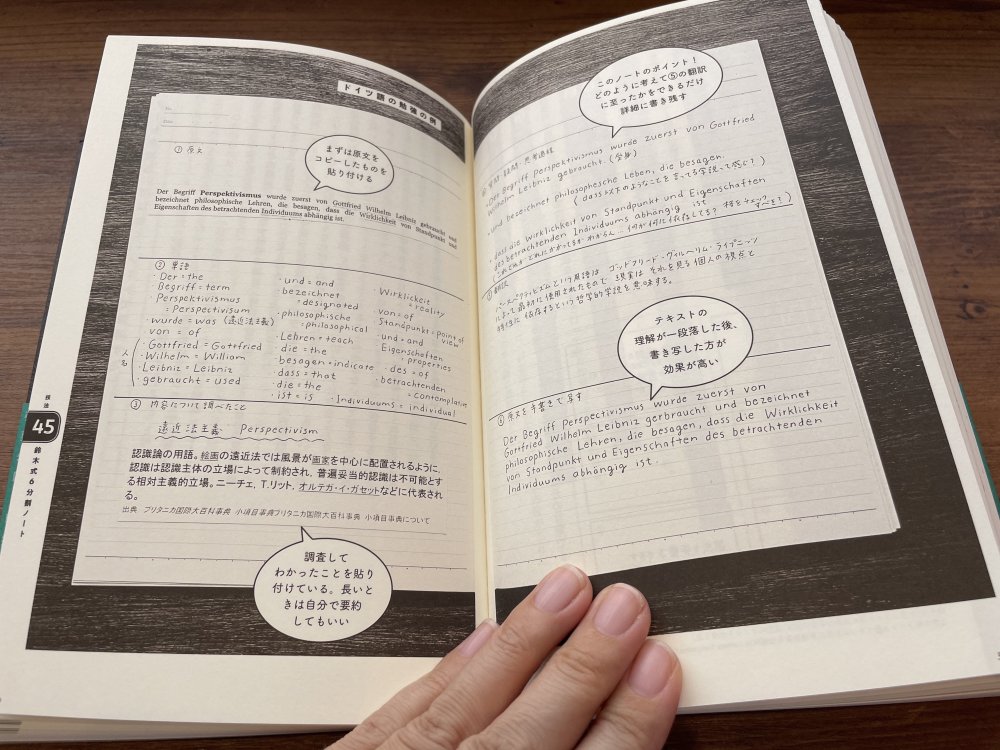 ドイツ語の勉強の例
① 原文
まずは原文を
コピーしたものを
貼り付ける
Der Begriff Perspektivismus wurde zuerst von Gottfried Wilhelm Leibniz gebraucht und
bezeichnet philosophische Lehren, die besagen, dass die Wirklichkeit von Standpunkt und
Eigenschaften des betrachtenden Individuums abhängig ist.
② 単語
・Der = the
Begriff = term
Perspektivismus
= Perspectivism
・wurde = was (遠近法主義)
von = of
人名
・Gottfried = Gottfried
・Wilhelm = William
・Leibniz = Leibniz
・gebraucht = used
・und = and
bezeichnet
= designated
・philosophische
= philosophical
・Lehren = teach
die = the
・besagen = indicate
・dass = that
die = the
・ist = is
Wirklickeit
= reality
von = of
Standpunkt = point of view
・und = and
Eigenschaften
= properties
・des = of
・betrachtenden
= contemplative
・Individuums = individual
③ 内容について調べたこと
遠近法主義 Perspectivism
認識論の用語。絵画の遠近法では風景が画家を中心に配置されるように,
認識は認識主体の立場によって制約され, 普遍妥当的認識は不可能とす
る相対主義的立場。ニーチェ, T.リット, オルテガ・イ・ガセットなどに代表され
る。
出典 ブリタニカ国際大百科事典 小項目事典ブリタニカ国際大百科事典 小項目事典について
調査して
わかったことを貼り
付けている。長いと
きは自分で要約
してもいい
技法
45
鈴木式6分割ノート
このノートのポイント!
どのように考えて⑤の翻訳
に至ったかをできるだけ
詳細に書き残す
質問・疑問・思考過程
・Der Begriff Perspektivismus wurde zuerst von Gottfried
Wilhelm Leibniz gebraucht.
・und bezeichnet philosophesche Leben, die besagen.
(dass以下のようなことを言ってる学説って感じ?)
・dass die Wirklichkeit von Standpunkt und Eigenschaften
des betrachtenden Individuums abhängig ist
パースペクティビズムという用語は ゴットフリード・ヴィルヘリム・ライプニッツ
によって最初に使用されたもので 現実は それを見る個人の視点と
特性に依存するという哲学的学説を意味する。
テキストの
理解が一段落した後、
書き写した方が
効果が高い
原文を手書きで写す
Der Begriff Perspectivismus wurde zuerst von
Gottfried Wilhelm Leibniz gerbraucht und bezeichnet
philosophische Lehren, die besagen, dass die Wirklichkeit
von Standpunkt und Eigenschaften des betrachtenden
Individuums abhängig ist.